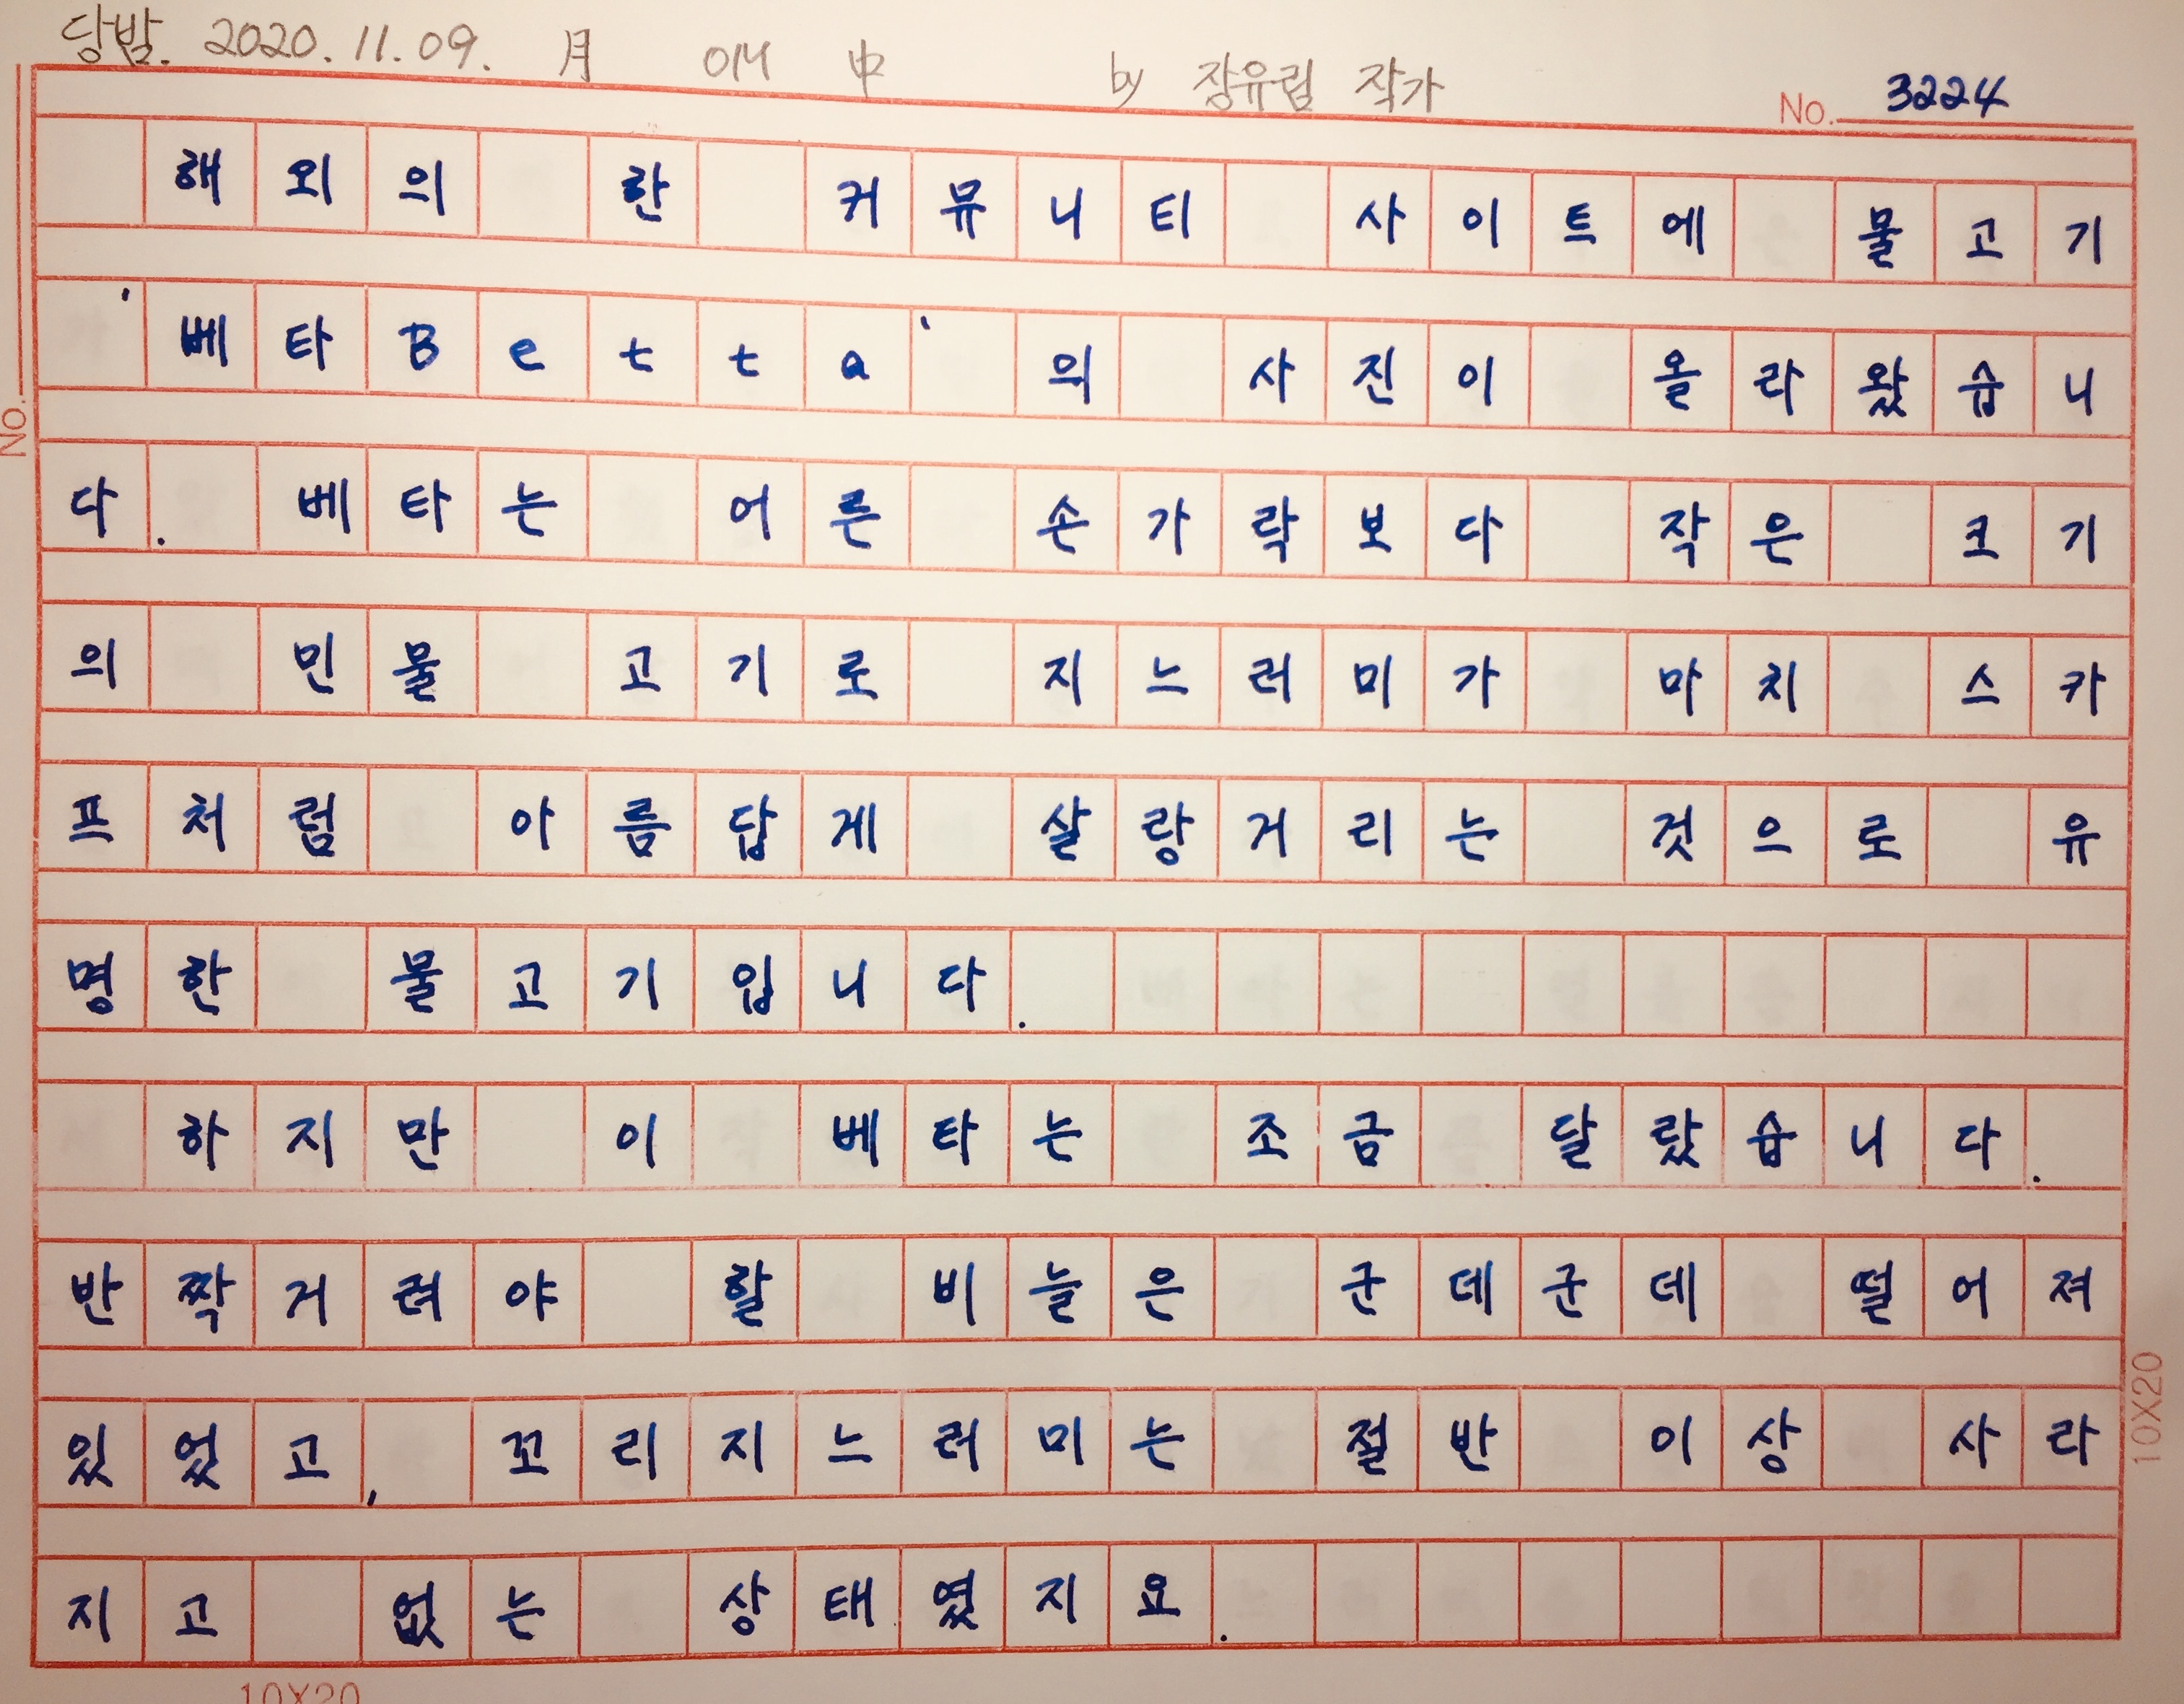 당밤. 2020. 11. 09. 月 에세 中 by 장유림 작가
No. 3224
해외의 한 커뮤니티 사이트에 물고기
'베타Betta'의 사진이 올라왔습니
다. 베타는 어른 손가락보다 작은 크기
의 민물 고기로 지느러미가 마치 스카
프처럼 아름답게 살랑거리는 것으로 유
명한 물고기입니다.
하지만 이 베타는 조금 달랐습니다.
반짝거려야 할 비늘은 군데군데 떨어져
있었고, 꼬리지느러미는 절반 이상 사라
지고 없는 상태였지요.
No.
10X20
10X20